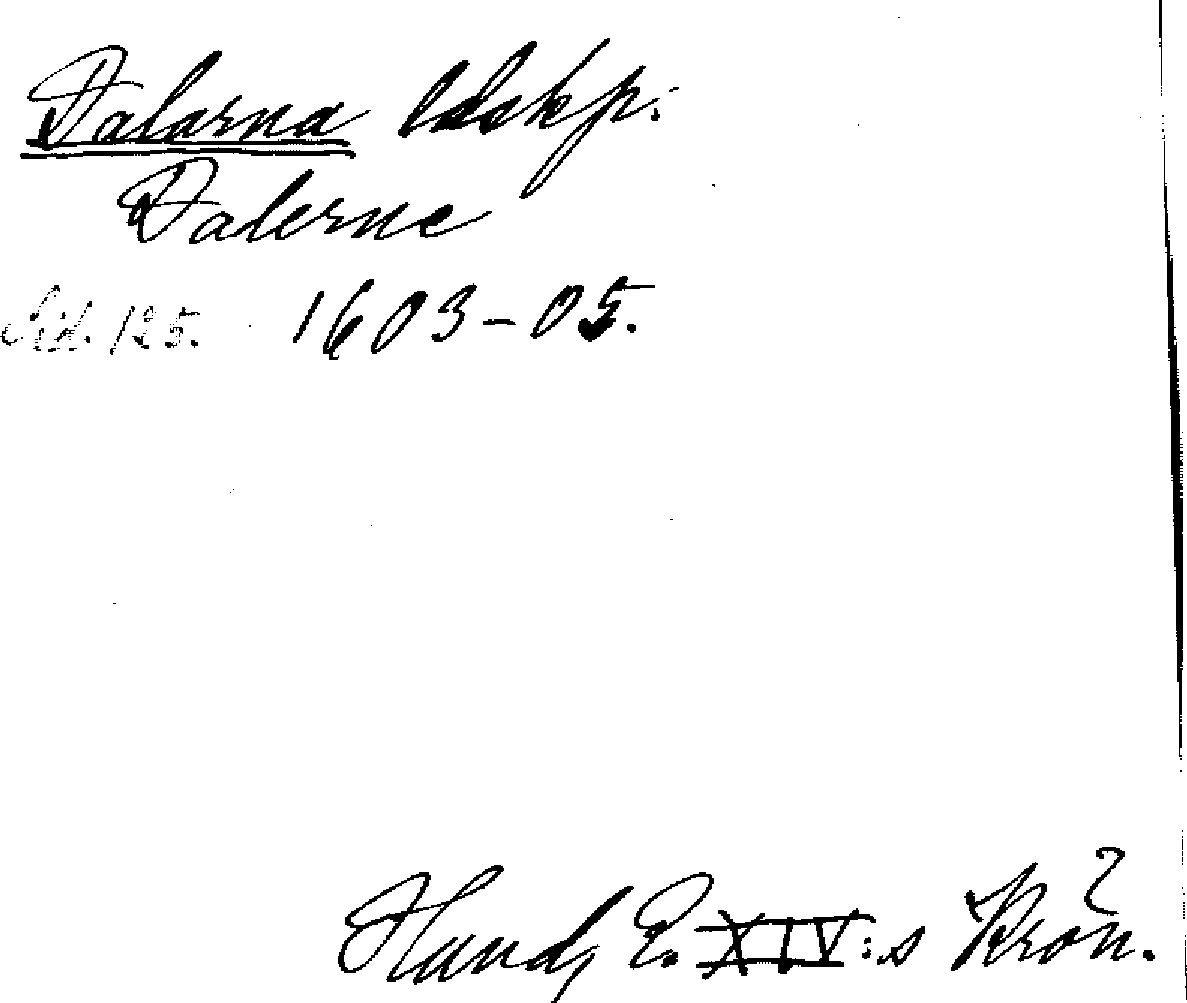 Dalarna ldskp:
Dalerne
Sid. 125. 1603-05.
Hund, E. XIV:s Krön.